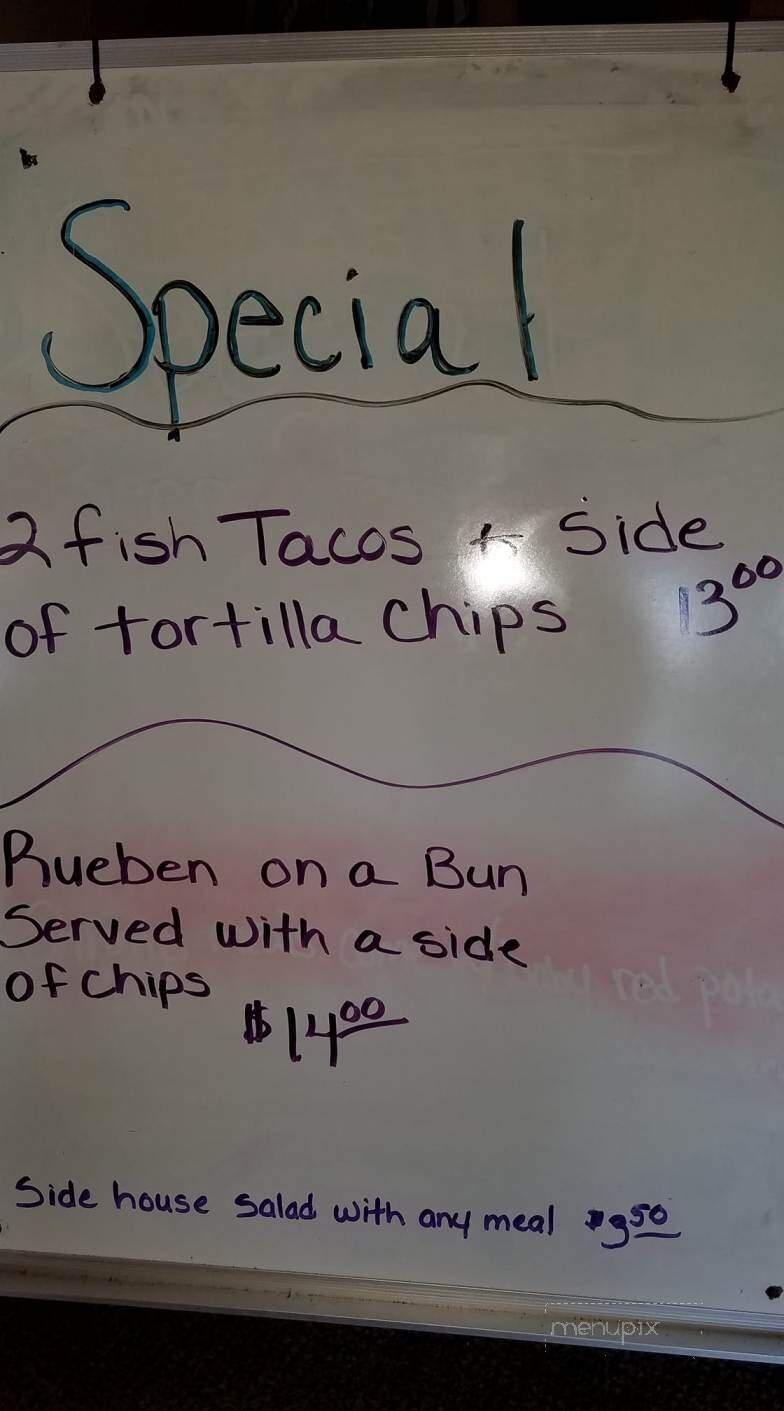 Special
2 fish Tacos + Side
of tortilla chips 13⁰⁰
Rueben on a Bun
Served with a side
of chips
$14⁰⁰
red
Side house salad with any meal $3⁵⁰
menupix